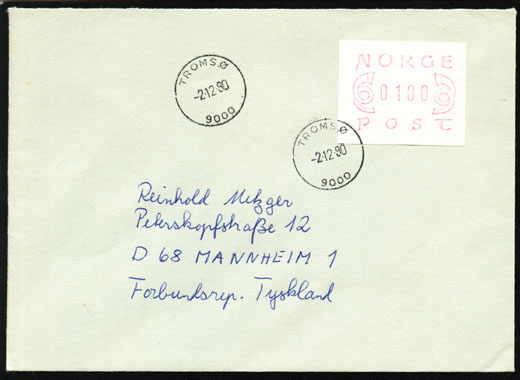 TROMSØ
-2.12.80
9000
NORGE
0180
POST
TROMSØ
-2.12.80
9000
Reinhold Metzger
Peterskopfstraße 12
D 68 MANNHEIM 1
Forbundsrep. Tyskland